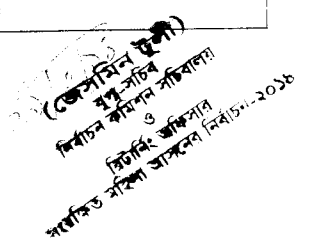 (জেসমিন টুলী)
যুগ্ম-সচিব
নির্বাচন কমিশন সচিবালয়
ও
রিটার্নিং অফিসার
সংরক্ষিত মহিলা আসনের নির্বাচন-২০১৪